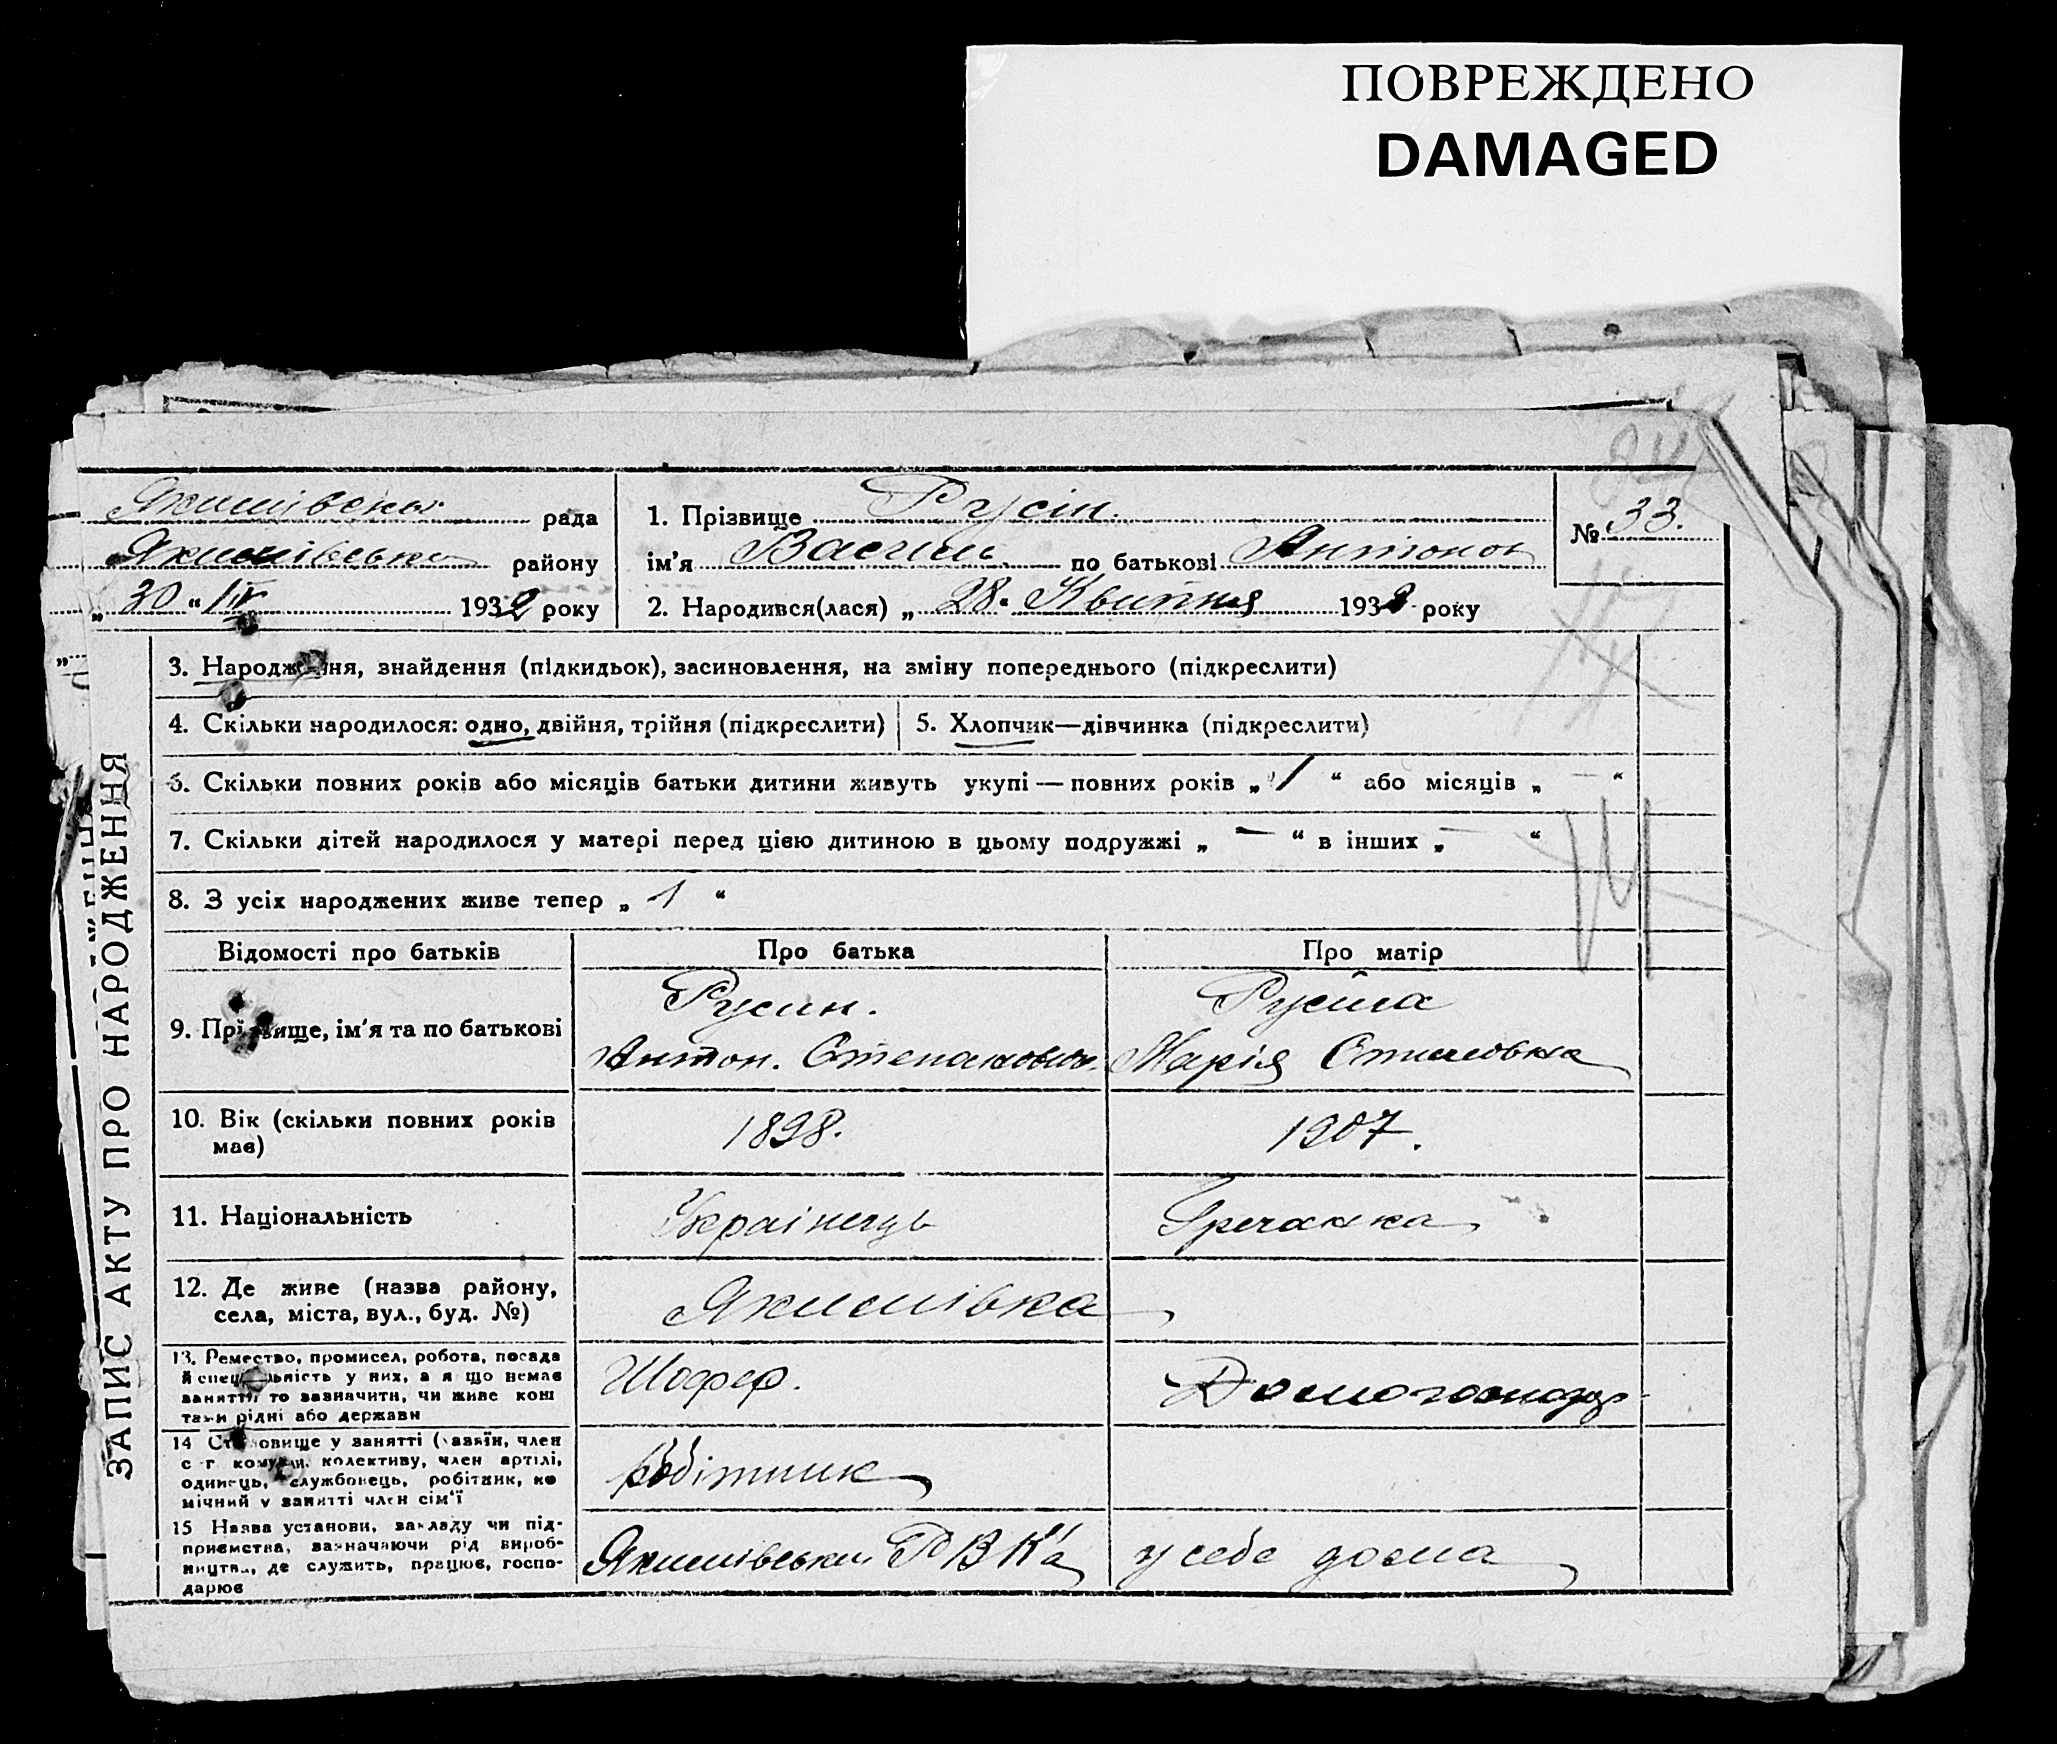 ПОВРЕЖДЕНО
DAMAGED
Якимівська рада
Якимівського району
„ 30 “ IV 1932 року
1. Прізвище Русін
ім’я Василь по батькові Антонов
2. Народився(лася) „ 28 “ Квітня 1932 року
№ 33.
ЗАПИС АКТУ ПРО НАРОДЖЕННЯ
3. Народження, знайдення (підкидьок), засиновлення, на зміну попереднього (підкреслити)
4. Скільки народилося: одно, двійня, трійня (підкреслити)
5. Хлопчик—дівчинка (підкреслити)
6. Скільки повних років або місяців батьки дитини живуть укупі — повних років „ 1 “ або місяців „ — “
7. Скільки дітей народилося у матері перед цією дитиною в цьому подружжі „ — “ в інших „ — “
8. З усіх народжених живе тепер „ 1 “
Відомості про батьків
Про батька
Про матір
9. Прізвище, ім’я та по батькові
Русин.
Антон. Степанович.
Русіна
Марія
10. Вік (скільки повних років
має)
1898.
1907.
11. Національність
Українець
Гречанка
12. Де живе (назва району,
села, міста, вул., буд. №)
Якимівка
13. Ремество, промисел, робота, посада
й спеціяльність у них, а якщо немає
заняття, то зазначити, чи живе кош
тами рідні або держави
Шофер.
Домогосподр
14 Становище у занятті (хазяїн, член
с-г комуни, колективу, член артілі,
одинець, службовець, робітник, по
мічний у занятті член сім’ї
робітник
15 Назва установи, закладу чи під-
приємства, зазначаючи рід вироб-
ництва, де служить, працює, госпо-
дарює
Якимівський РВК'а
у себе дома